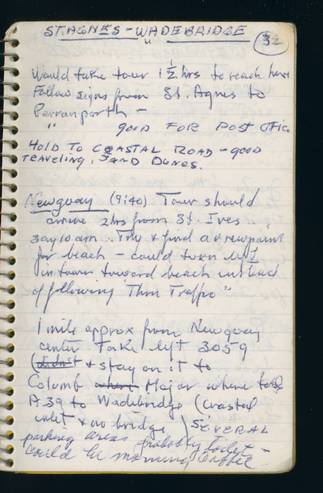 ST. AGNES - WADEBRIDGE 32
Would take tour 1½ hrs to reach here
Follow signs from St. Agnes to
Perranporth -
" good FOR POST Office
HOLD TO COASTAL ROAD - good
TRAVELING, SAND DUNES.
Newquay (9:40) Tour should
arrive 2 hrs from St. Ives
say 10 am Try & find a viewpoint
for beach - could turn left
in town toward beach instead
of following "Thru Traffic"
1 mile approx from Newquay
center Take left 3059
& stay on it to
Columb Major where take
A39 to Wadebridge (coastal
inlet & no bridge) SEVERAL
parking areas probably toilet -
could be morning coffee